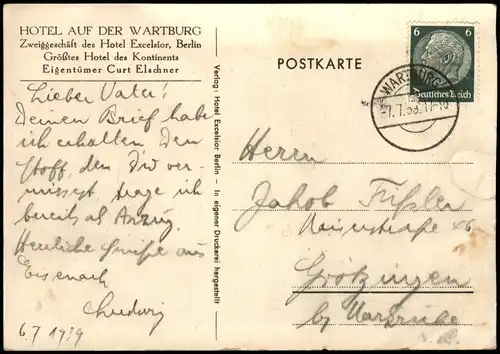 HOTEL AUF DER WARTBURG
Zweiggeschäft des Hotel Excelsior, Berlin
Größtes Hotel des Kontinents
Eigentümer Curt Elschner
Lieber Vater!
Deinen Brief habe
ich erhalten. Den
Stoff, den Du ver-
misst, trage ich
bereits als Anzug.
Herzliche Grüße aus
Eisenach
Ludwig
6.7 1939
Verlag: Hotel Excelsior Berlin - In eigener Druckerei hergestellt
POSTKARTE
6 6
Deutsches Reich
WARTBURG
Herrn
Jakob Füßler
Grötzingen
by Karlsruhe